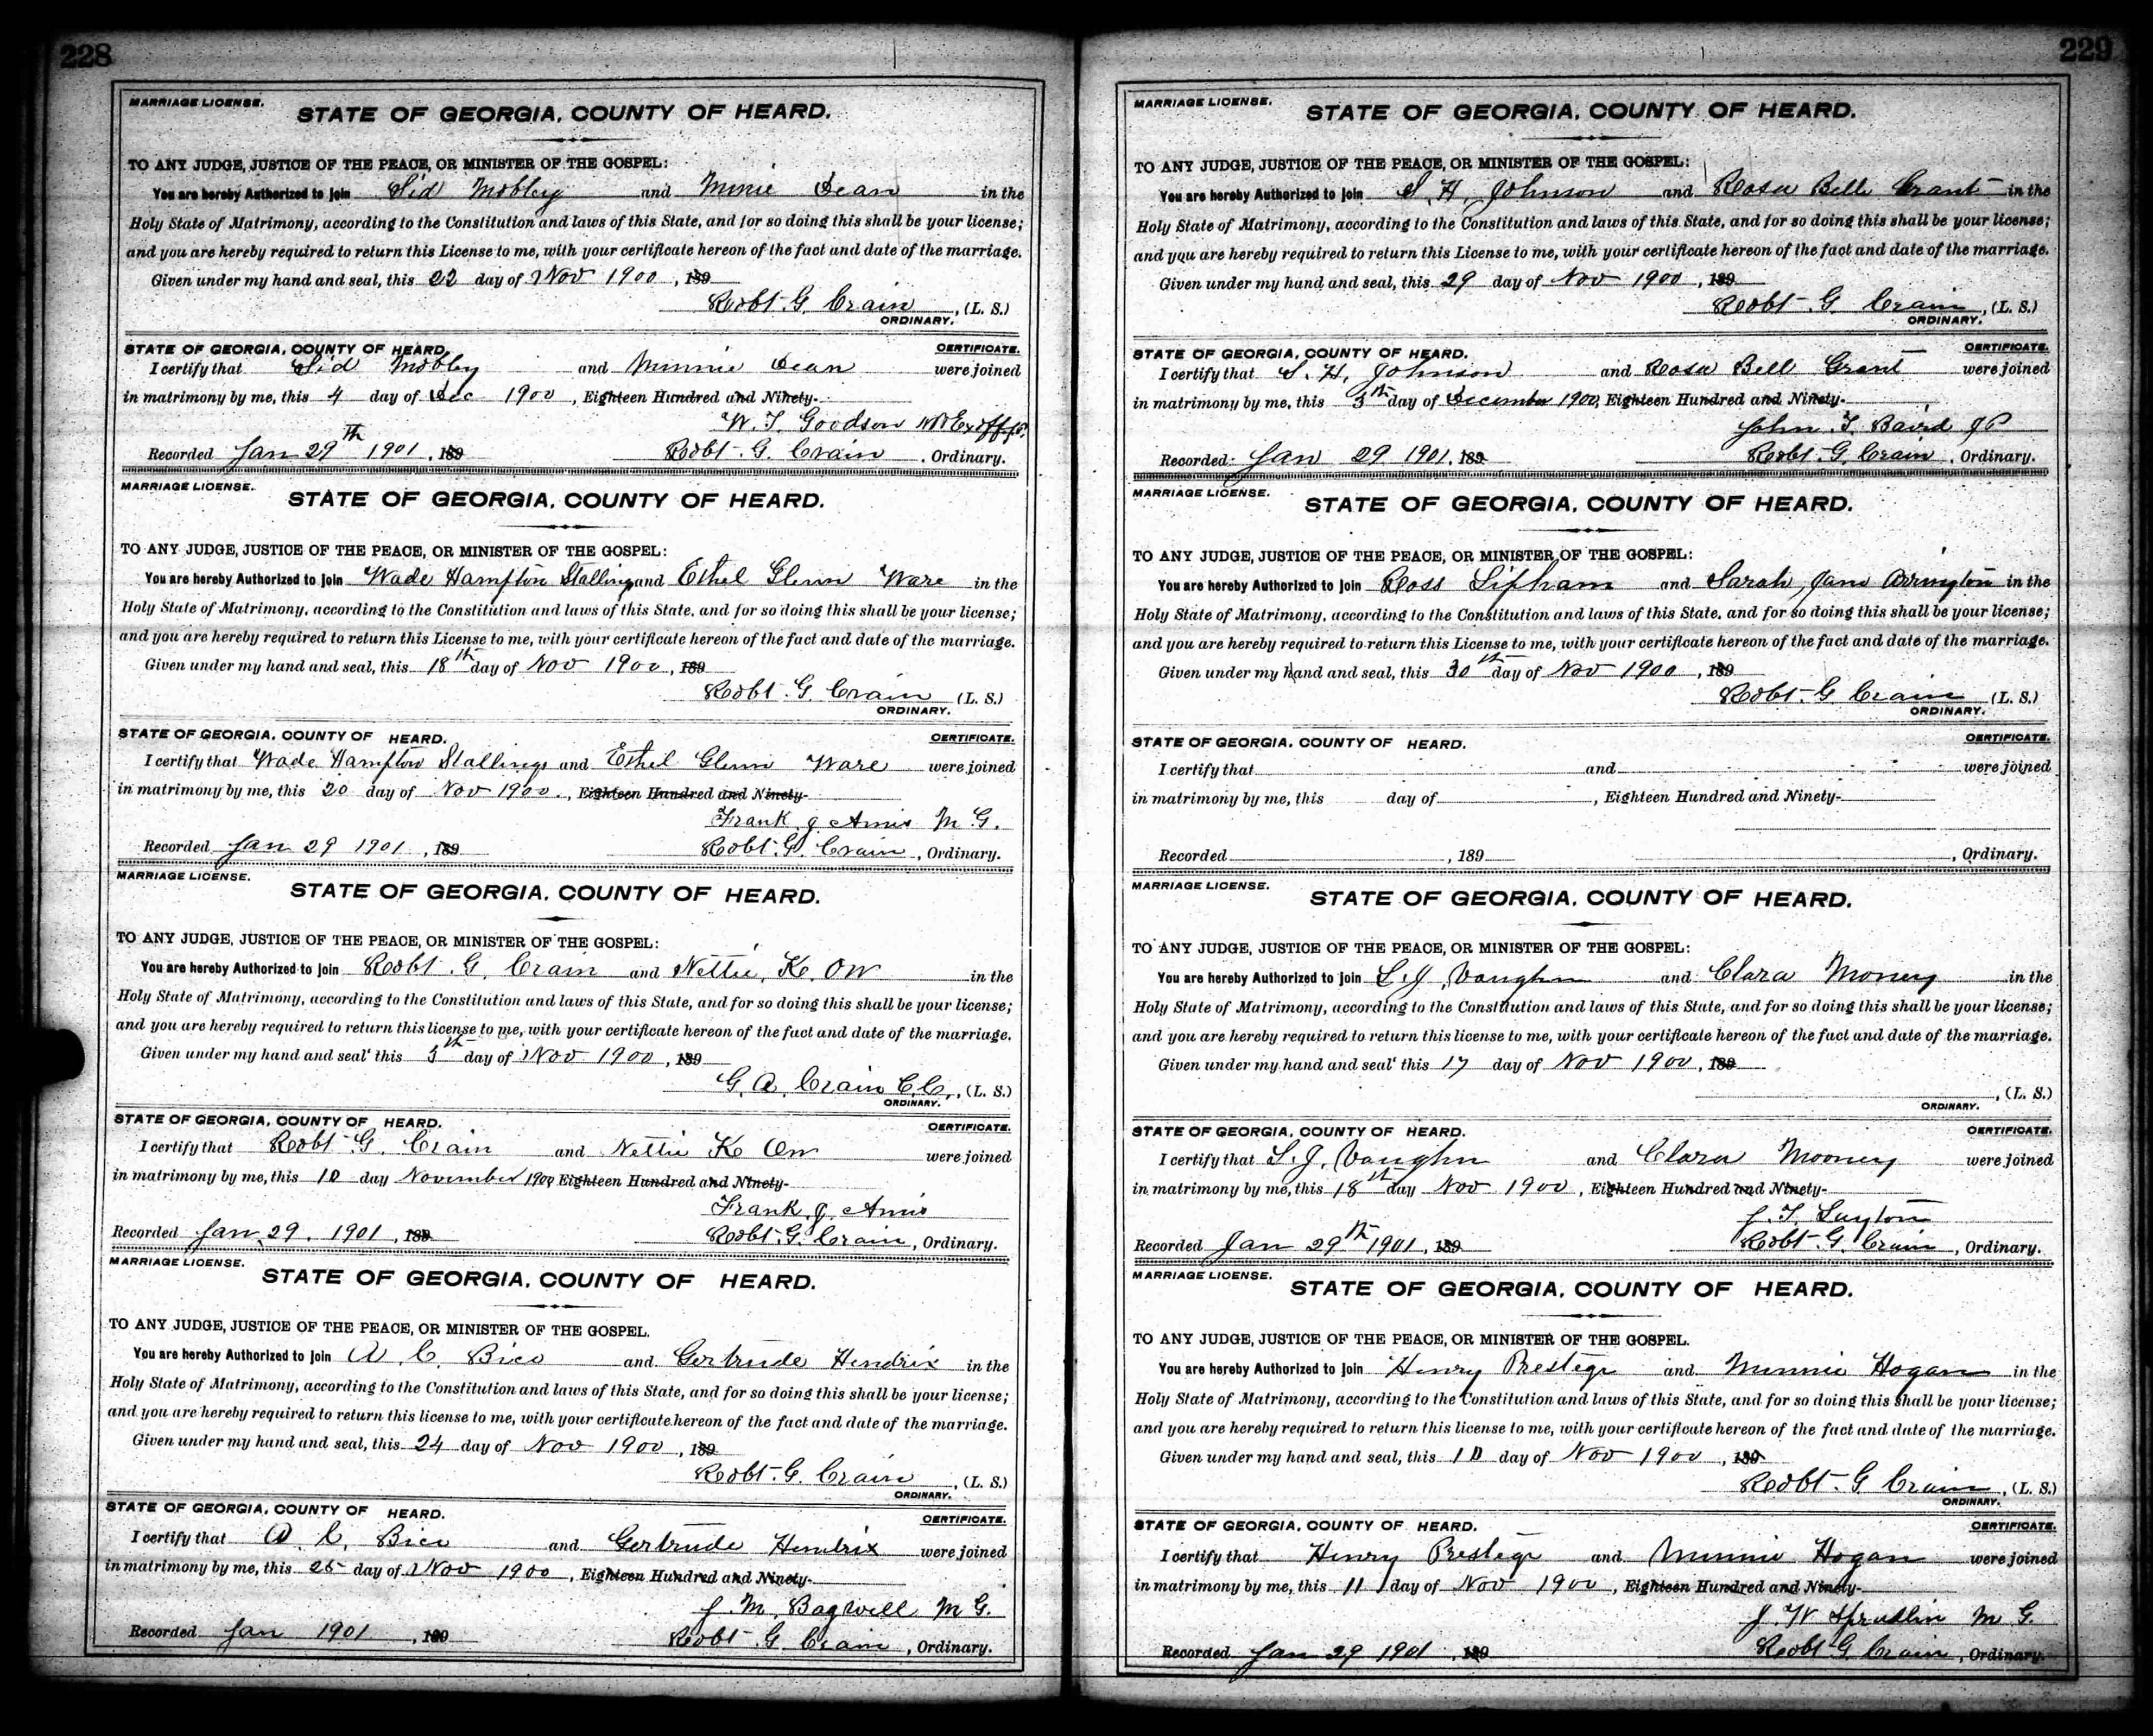 228
MARRIAGE LICENSE.
STATE OF GEORGIA, COUNTY OF HEARD.
TO ANY JUDGE, JUSTICE OF THE PEACE, OR MINISTER OF THE GOSPEL:
You are hereby Authorized to join Sid Mobley and Minie Dean in the
Holy State of Matrimony, according to the Constitution and laws of this State, and for so doing this shall be your license;
and you are hereby required to return this License to me, with your certificate hereon of the fact and date of the marriage.
Given under my hand and seal, this 22 day of Nov 1900, 189
Robt. G. Crain, (L. S.)
ORDINARY.
STATE OF GEORGIA, COUNTY OF HEARD.
CERTIFICATE.
I certify that Sid Mobley and Minnie Dean were joined
in matrimony by me, this 4 day of Dec 1900, Eighteen Hundred and Ninety-
W. T. Goodson
Recorded Jan 29th 1901, 189 Robt. G. Crain, Ordinary.
MARRIAGE LICENSE.
STATE OF GEORGIA, COUNTY OF HEARD.
TO ANY JUDGE, JUSTICE OF THE PEACE, OR MINISTER OF THE GOSPEL:
You are hereby Authorized to join Wade Hampton Stallings and Ethel Glenn Ware in the
Holy State of Matrimony, according to the Constitution and laws of this State, and for so doing this shall be your license;
and you are hereby required to return this License to me, with your certificate hereon of the fact and date of the marriage.
Given under my hand and seal, this 18th day of Nov 1900, 189
Robt. G. Crain (L. S.)
ORDINARY.
STATE OF GEORGIA, COUNTY OF HEARD.
CERTIFICATE.
I certify that Wade Hampton Stallings and Ethel Glenn Ware were joined
in matrimony by me, this 20 day of Nov 1900, Eighteen Hundred and Ninety-
Frank J Amis M. G.
Recorded Jan 29 1901, 189 Robt. G. Crain, Ordinary.
MARRIAGE LICENSE.
STATE OF GEORGIA, COUNTY OF HEARD.
TO ANY JUDGE, JUSTICE OF THE PEACE, OR MINISTER OF THE GOSPEL:
You are hereby Authorized to join Robt. G. Crain and Nettie K. Orr in the
Holy State of Matrimony, according to the Constitution and laws of this State, and for so doing this shall be your license;
and you are hereby required to return this license to me, with your certificate hereon of the fact and date of the marriage.
Given under my hand and seal this 5th day of Nov 1900, 189
G. A. Crain C.C., (L. S.)
ORDINARY.
STATE OF GEORGIA, COUNTY OF HEARD.
CERTIFICATE.
I certify that Robt. G. Crain and Nettie K Orr were joined
in matrimony by me, this 10 day November 1900, Eighteen Hundred and Ninety-
Frank J. Amis
Recorded Jan. 29. 1901, 189 Robt. G. Crain, Ordinary.
MARRIAGE LICENSE.
STATE OF GEORGIA, COUNTY OF HEARD.
TO ANY JUDGE, JUSTICE OF THE PEACE, OR MINISTER OF THE GOSPEL.
You are hereby Authorized to join A. C. Bice and Gertrude Hendrix in the
Holy State of Matrimony, according to the Constitution and laws of this State, and for so doing this shall be your license;
and you are hereby required to return this license to me, with your certificate hereon of the fact and date of the marriage.
Given under my hand and seal, this 24 day of Nov 1900, 189
Robt. G. Crain, (L. S.)
ORDINARY.
STATE OF GEORGIA, COUNTY OF HEARD.
CERTIFICATE.
I certify that A. C. Bice and Gertrude Hendrix were joined
in matrimony by me, this 25 day of Nov 1900, Eighteen Hundred and Ninety-
J. M. Bagwell M G.
Recorded Jan 1901, 189 Robt G. Crain, Ordinary.
229
MARRIAGE LICENSE.
STATE OF GEORGIA, COUNTY OF HEARD.
TO ANY JUDGE, JUSTICE OF THE PEACE, OR MINISTER OF THE GOSPEL:
You are hereby Authorized to join S. H. Johnson and Rosa Bell Grant in the
Holy State of Matrimony, according to the Constitution and laws of this State, and for so doing this shall be your license;
and you are hereby required to return this License to me, with your certificate hereon of the fact and date of the marriage.
Given under my hand and seal, this 29 day of Nov 1900, 189
Robt. G. Crain, (L. S.)
ORDINARY.
STATE OF GEORGIA, COUNTY OF HEARD.
CERTIFICATE.
I certify that S. H. Johnson and Rosa Bell Grant were joined
in matrimony by me, this 5th day of December 1900, Eighteen Hundred and Ninety-
John. T. Baird JP
Recorded: Jan 29 1901, 189 Robt. G. Crain, Ordinary.
MARRIAGE LICENSE.
STATE OF GEORGIA, COUNTY OF HEARD.
TO ANY JUDGE, JUSTICE OF THE PEACE, OR MINISTER OF THE GOSPEL:
You are hereby Authorized to join Ross Lipham and Sarah Jane Arrington in the
Holy State of Matrimony, according to the Constitution and laws of this State, and for so doing this shall be your license;
and you are hereby required to return this License to me, with your certificate hereon of the fact and date of the marriage.
Given under my hand and seal, this 30th day of Nov 1900, 189
Robt. G Crain (L. S.)
ORDINARY.
STATE OF GEORGIA, COUNTY OF HEARD.
CERTIFICATE.
I certify that and were joined
in matrimony by me, this day of , Eighteen Hundred and Ninety-
Recorded , 189 , Ordinary.
MARRIAGE LICENSE.
STATE OF GEORGIA, COUNTY OF HEARD.
TO ANY JUDGE, JUSTICE OF THE PEACE, OR MINISTER OF THE GOSPEL:
You are hereby Authorized to join L. J. Vaughn and Clara Money in the
Holy State of Matrimony, according to the Constitution and laws of this State, and for so doing this shall be your license;
and you are hereby required to return this license to me, with your certificate hereon of the fact and date of the marriage.
Given under my hand and seal this 17 day of Nov 1900, 189
, (L. S.)
ORDINARY.
STATE OF GEORGIA, COUNTY OF HEARD.
CERTIFICATE.
I certify that L. J. Vaughn and Clara Mooney were joined
in matrimony by me, this 18th day Nov 1900, Eighteen Hundred and Ninety-
J. T. Layton
Recorded Jan 29th 1901, 189 Robt. G. Crain, Ordinary.
MARRIAGE LICENSE.
STATE OF GEORGIA, COUNTY OF HEARD.
TO ANY JUDGE, JUSTICE OF THE PEACE, OR MINISTER OF THE GOSPEL.
You are hereby Authorized to join Henry Prestege and Minnie Hogan in the
Holy State of Matrimony, according to the Constitution and laws of this State, and for so doing this shall be your license;
and you are hereby required to return this license to me, with your certificate hereon of the fact and date of the marriage.
Given under my hand and seal, this 10 day of Nov 1900, 189
Robt. G. Crain, (L. S.)
ORDINARY.
STATE OF GEORGIA, COUNTY OF HEARD.
CERTIFICATE.
I certify that Henry Prestege and Minnie Hogan were joined
in matrimony by me, this 11 day of Nov 1900, Eighteen Hundred and Ninety-
J. W. Spradlin M G.
Recorded Jan 29 1901, 189 Robt G. Crain, Ordinary.